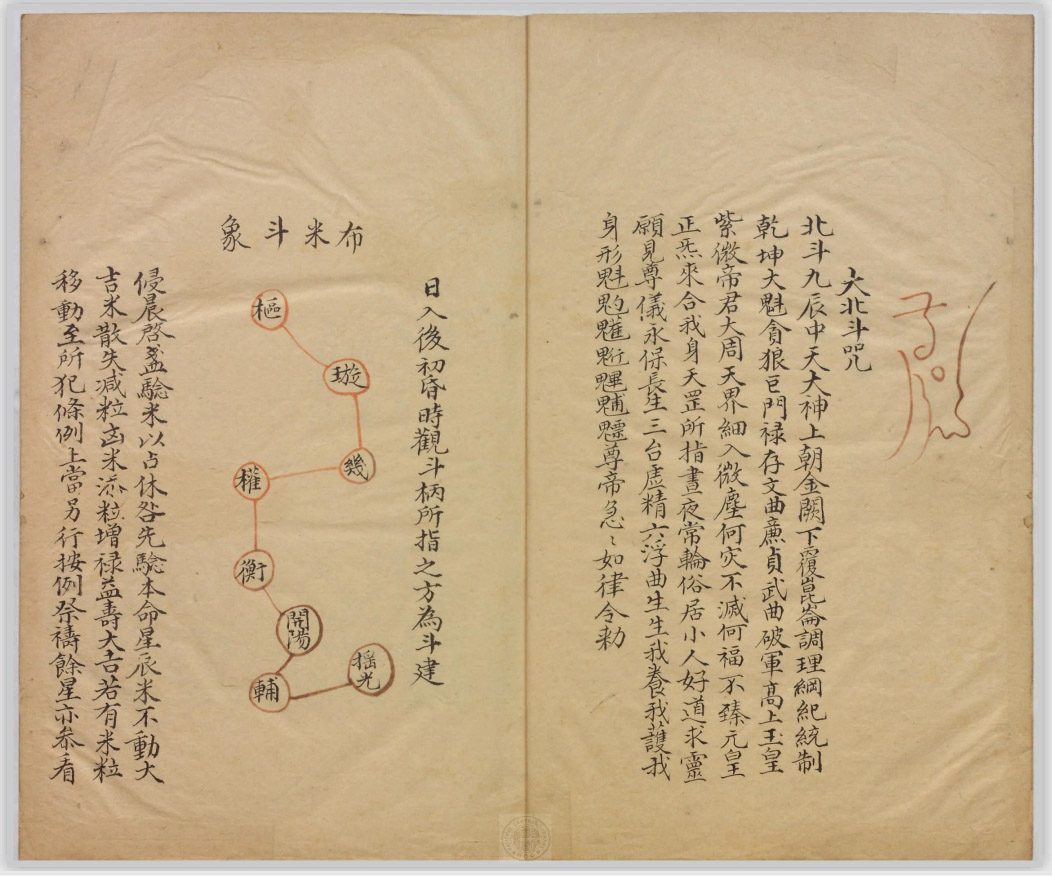 大北斗咒
北斗九辰中天大神上朝金闕下覆崑崙調理綱紀統制
乾坤大魁貪狼巨門禄存文曲廉貞武曲破軍高上玉皇
紫微帝君大周天界細入微塵何灾不滅何福不臻元皇
正炁來合我身天罡所指晝夜常輪俗居小人好道求靈
願見尊儀永保長生三台虚精六浮曲生生我養我護我
身形魁䰢魓尊帝急〻如律令勅
日入後初昏時觀斗柄所指之方為斗建
布米斗象
樞
璇
幾
權
衡
開陽
輔
揺光
侵晨啓盏驗米以占休咎先驗本命星辰米不動大
吉米散失减粒凶米添粒增禄益壽大吉若有米粒
移動至所犯條例上當另行按例祭禱餘星亦叅看